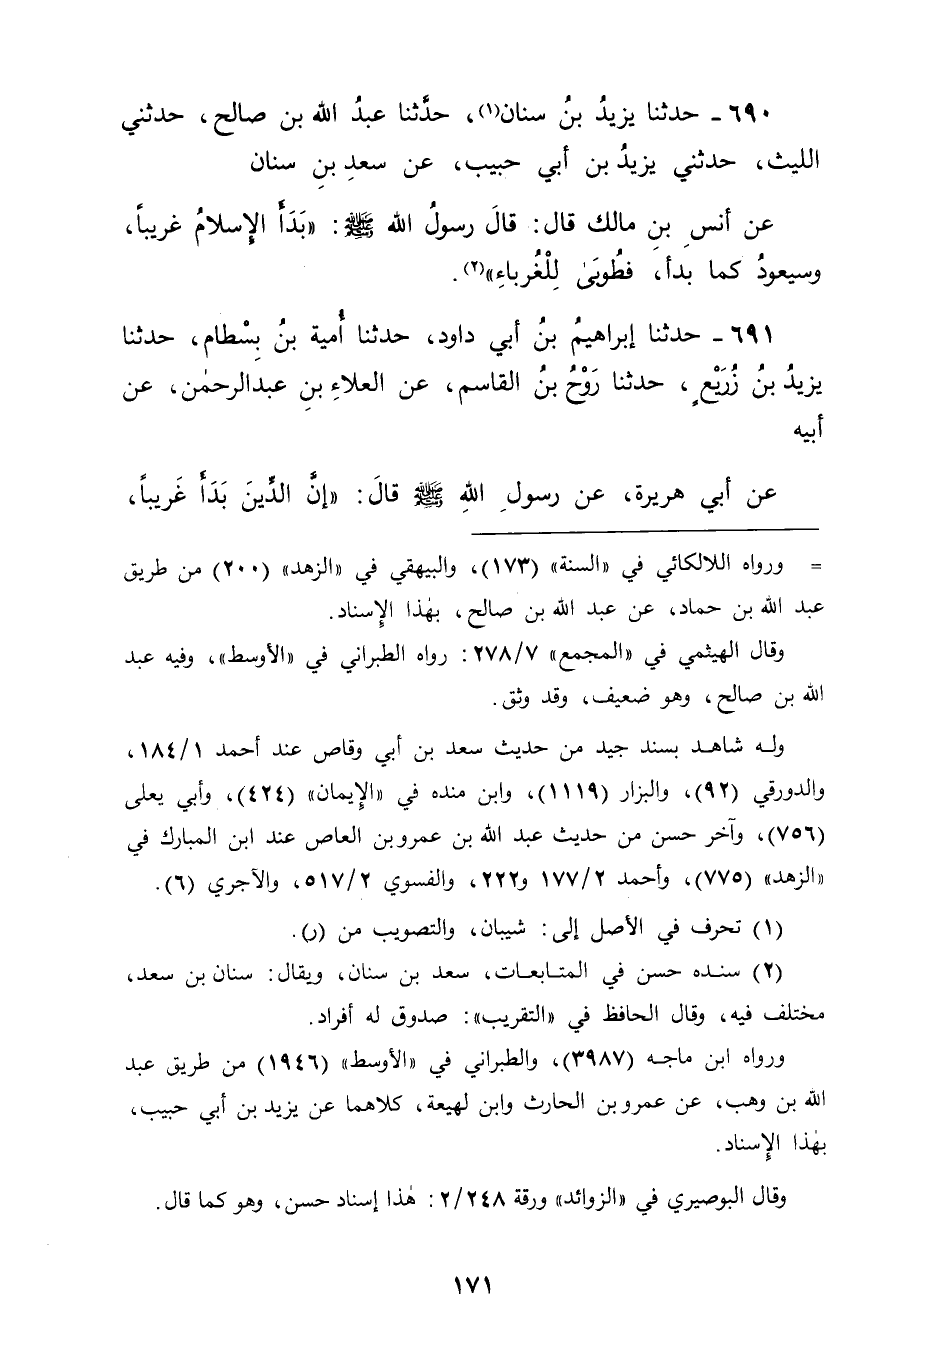 ٦٩٠ـ حدثنا يزيدُ بنُ سنان(١)، حدَّثنا عبدُ الله بن صالح، حدثني
الليث، حدثني يزيدُ بن أبي حبيب، عن سعدِ بنِ سنان
عن أنسِ بنِ مالك قال: قالَ رسولُ الله ﷺ: «بَدَأَ الإِسلامُ غريباً،
وسيعودُ كما بدأ، فطُوبَىٰ لِلْغُرباءِ»(٢).
٦٩١ـ حدثنا إبراهيمُ بنُ أبي داود، حدثنا أُمية بنُ بِسْطام، حدثنا
يزيدُ بنُ زُرَيْعٍ، حدثنا رَوْحُ بنُ القاسم، عن العلاءِ بنِ عبدالرحمٰن، عن
أبيه
عن أبي هريرة، عن رسولِ اللهِ ﷺ قالَ: «إنَّ الدِّينَ بَدَأَ غَريباً،
= ورواه اللالكائي في «السنة» (١٧٣)، والبيهقي في «الزهد» (٢٠٠) من طريق
عبد الله بن حماد، عن عبد الله بن صالح، بهٰذا الإِسناد.
وقال الهيثمي في «المجمع» ٢٧٨/٧: رواه الطبراني في «الأوسط»، وفيه عبد
الله بن صالح، وهو ضعيف، وقد وثق.
وله شاهد بسند جيد من حديث سعد بن أبي وقاص عند أحمد ١٨٤/١،
والدورقي (٩٢)، والبزار (١١١٩)، وابن منده في «الإِيمان» (٤٢٤)، وأبي يعلى
(٧٥٦)، وآخر حسن من حديث عبد الله بن عمرو بن العاص عند ابن المبارك في
«الزهد» (٧٧٥)، وأحمد ١٧٧/٢ و٢٢٢، والفسوي ٥١٧/٢، والآجري (٦).
(١) تحرف في الأصل إلى: شيبان، والتصويب من (ر).
(٢) سنده حسن في المتابعات، سعد بن سنان، ويقال: سنان بن سعد،
مختلف فيه، وقال الحافظ في «التقريب»: صدوق له أفراد.
ورواه ابن ماجه (٣٩٨٧)، والطبراني في «الأوسط» (١٩٤٦) من طريق عبد
الله بن وهب، عن عمرو بن الحارث وابن لهيعة، كلاهما عن يزيد بن أبي حبيب،
بهٰذا الإِسناد.
وقال البوصيري في «الزوائد» ورقة ٢/٢٤٨: هٰذا إسناد حسن، وهو كما قال.
١٧١